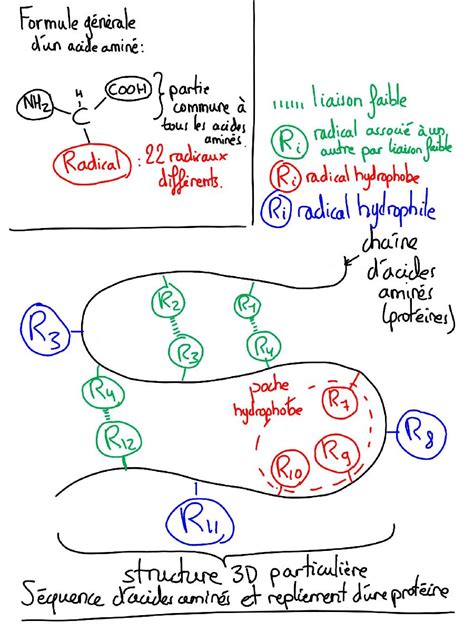 Formule générale
d'un acide aminé:
NH₂
H
C
COOH
partie
commune à
tous les acides
aminés.
Radical : 22 radicaux
différents.
...... liaison faible
Ri radical associé à un
autre par liaison faible
Ri radical hydrophobe
Ri radical hydrophile
chaîne
d'acides
aminés
(protéines)
R2
R1
R3
R3
R4
R4
poche
hydrophobe
R7
R12
R8
R10
R9
R11
structure 3D particulière
Séquence d'acides aminés et repliement d'une protéine